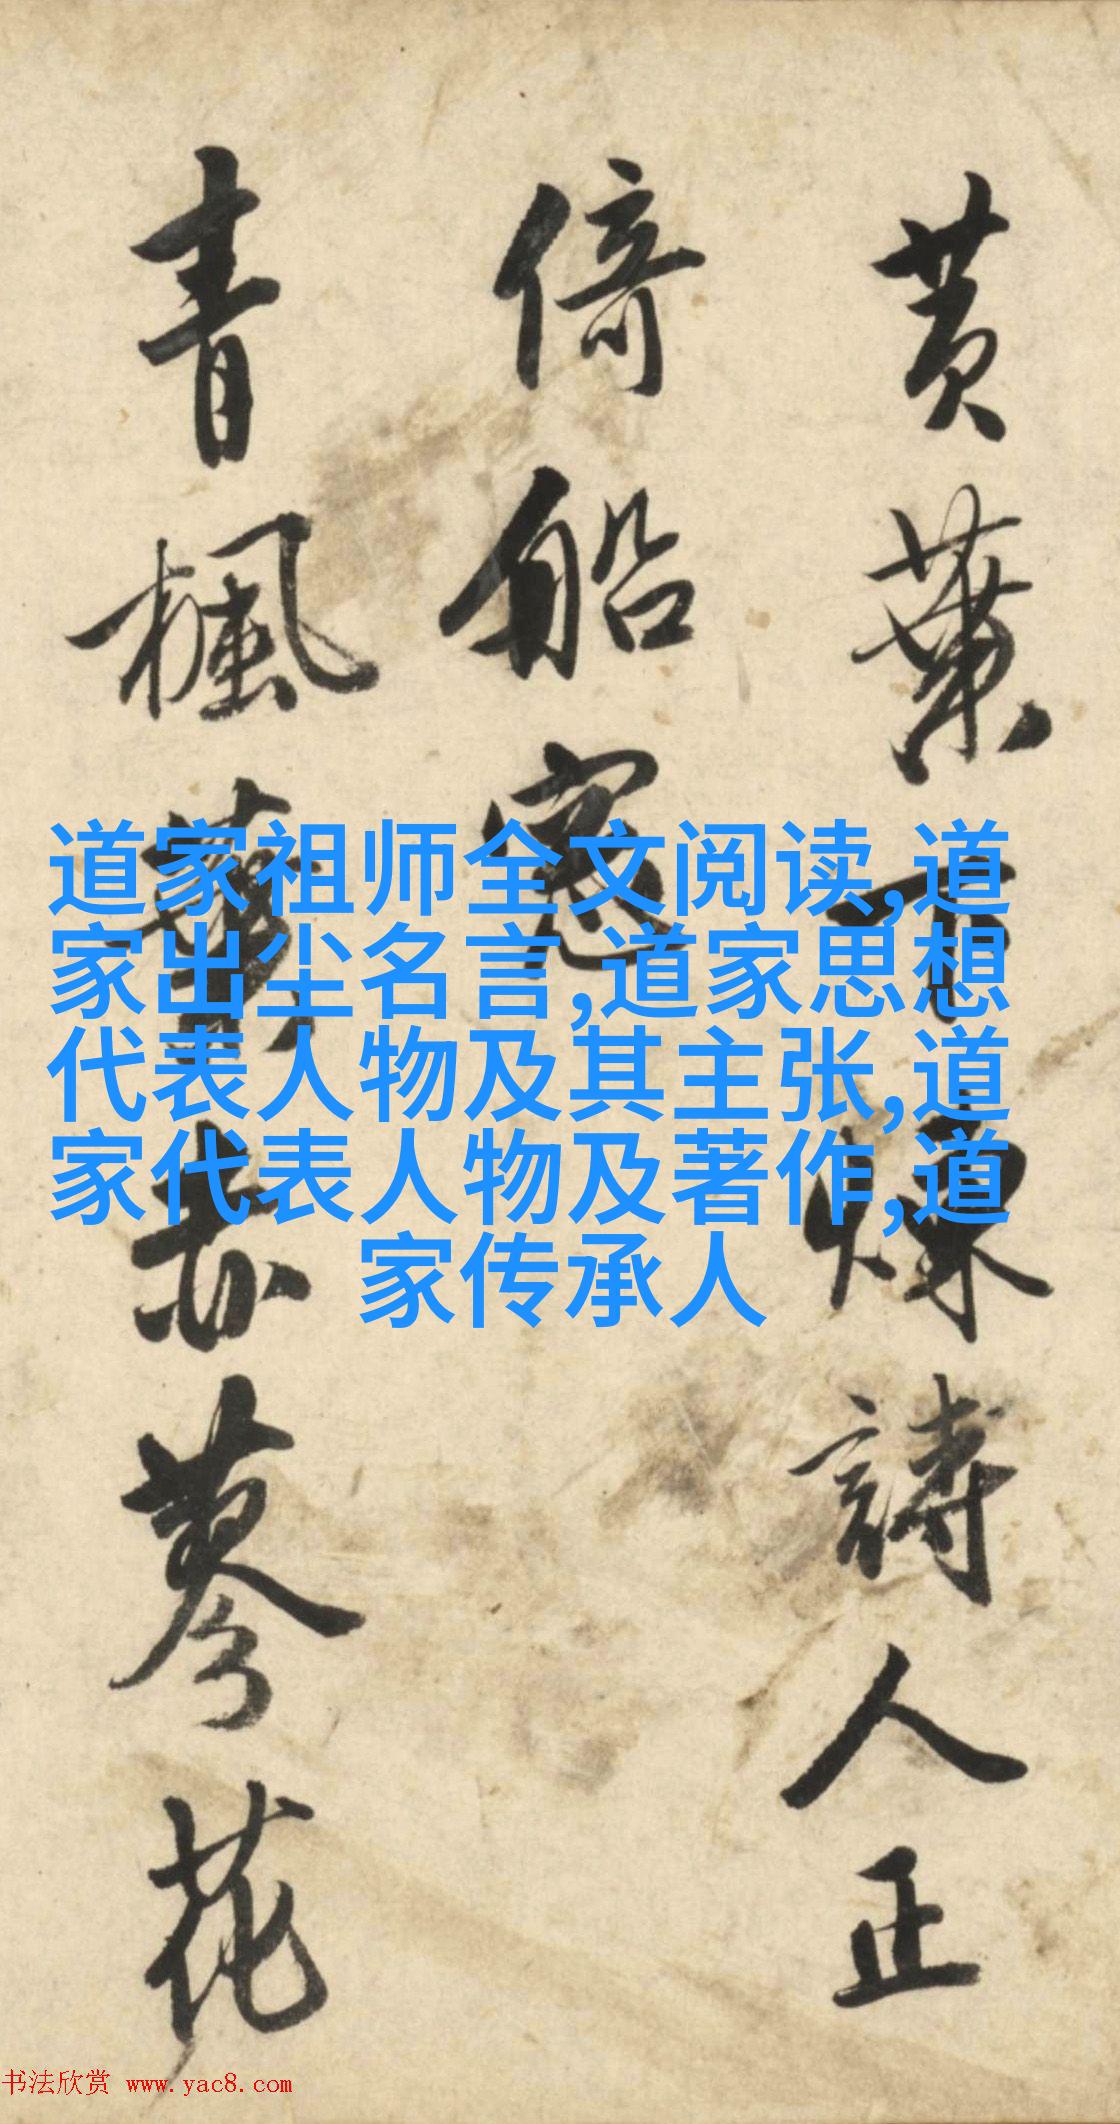 黄葉下㶑詩人正
倚船窓
青楓葉赤蓼花
道家祖师全文阅读,道
家出尘名言,道家思想
代表人物及其主张,道
家代表人物及著作,道
家传承人
书法欣赏 www.yac8.com